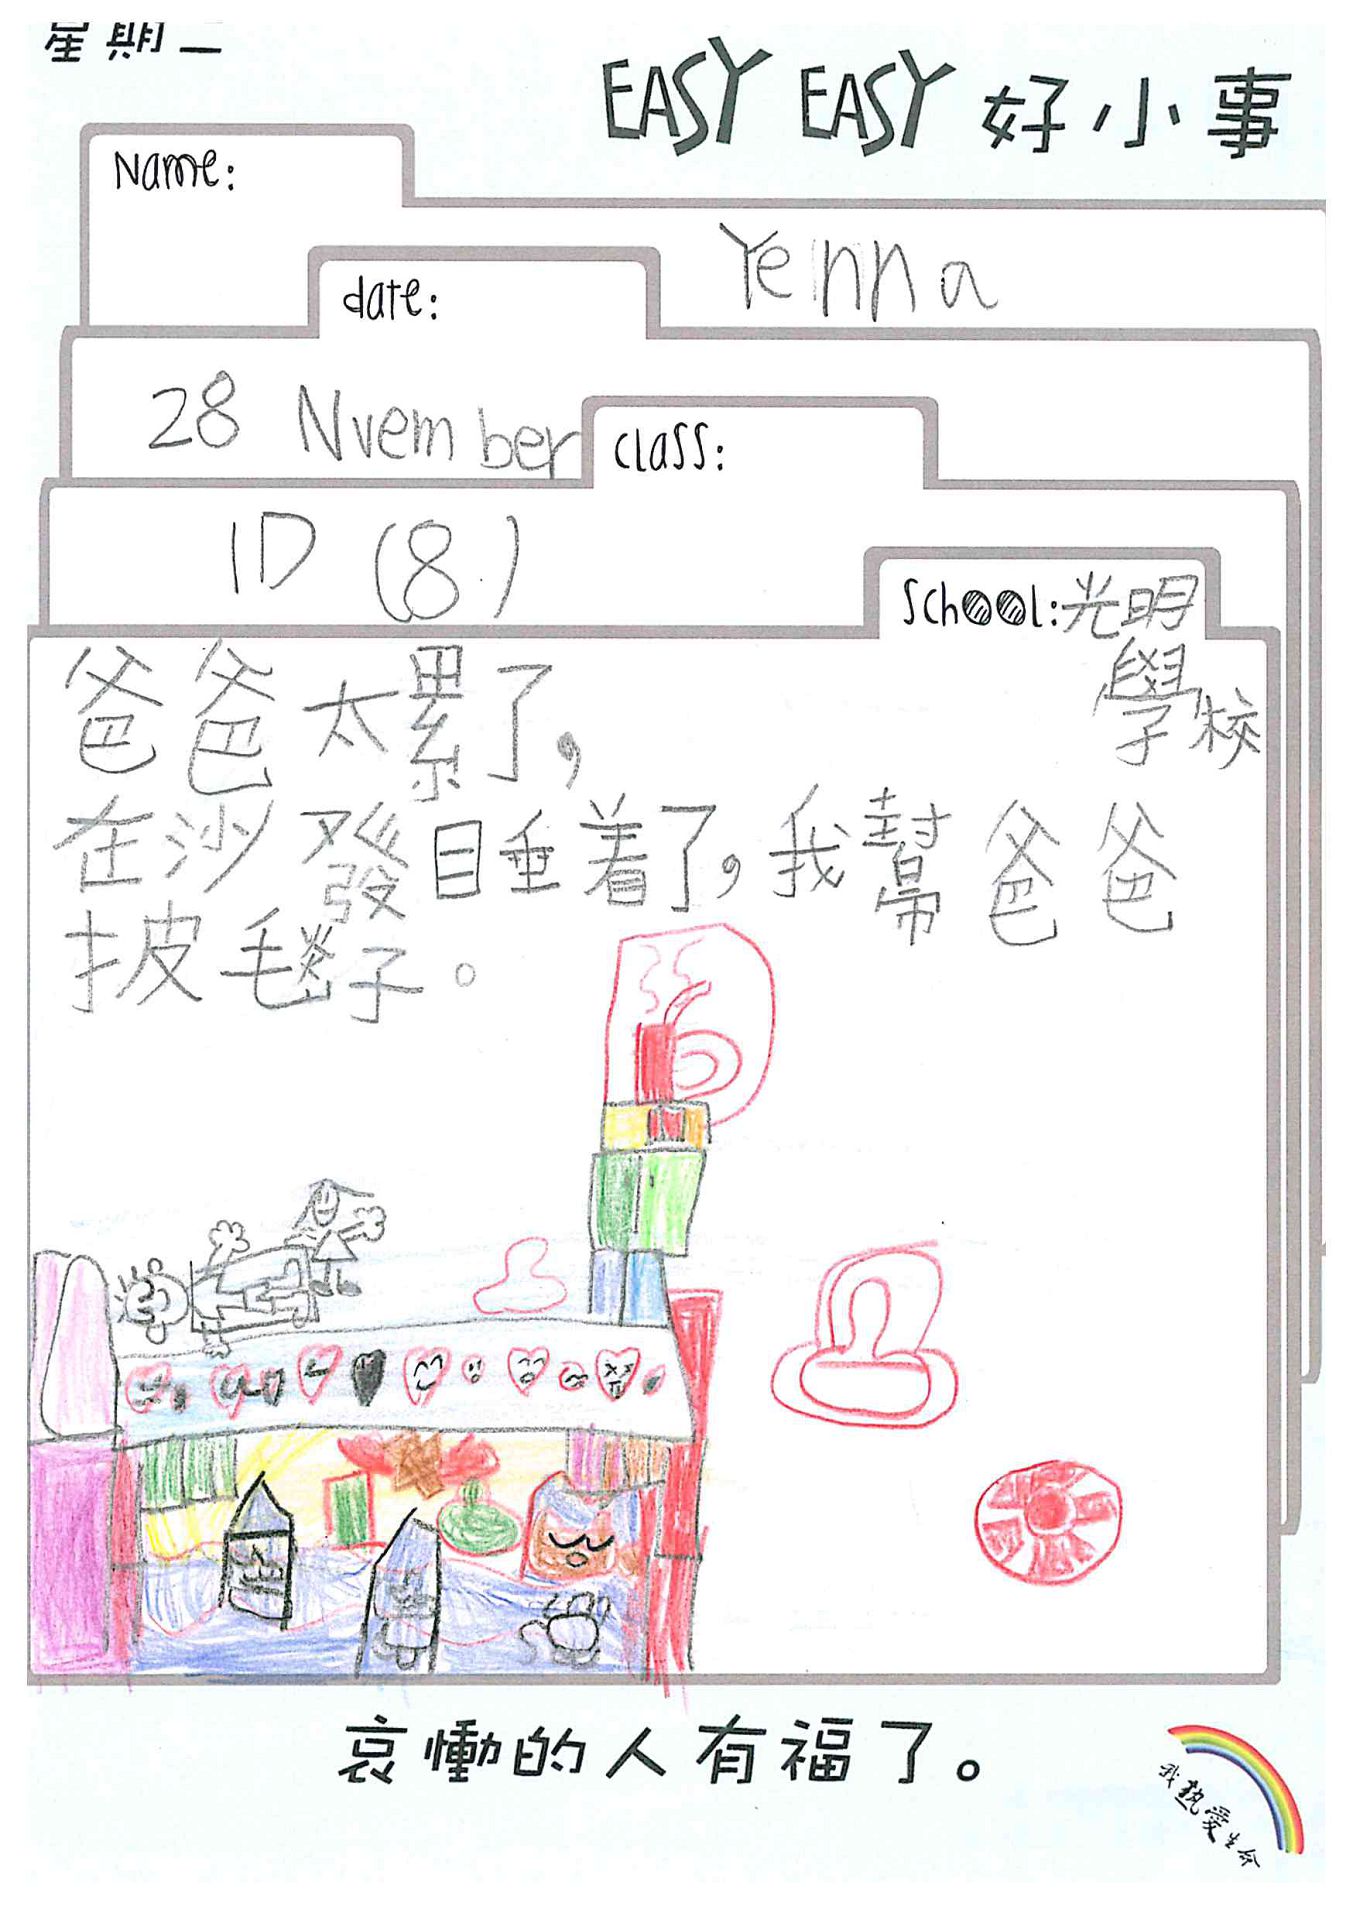 星期二
EASY EASY 好小事
Name:
Yenna
date:
28 Nvember
class:
1D (8)
School:光明
學校
爸爸太累了,
在沙發睡着了,我幫爸爸
披毛毯子。
哀慟的人有福了。
我熱愛生命